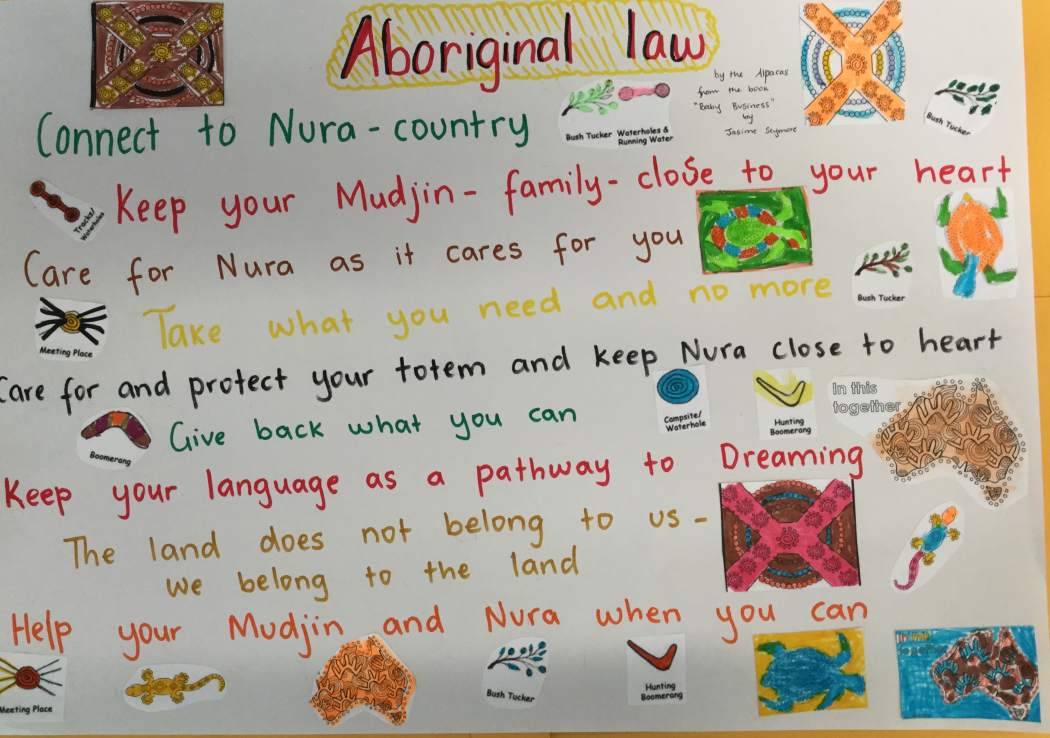 Aboriginal law
by the Alpacas
from the book
"Baby Business"
by
Jasime Seymore
Connect to Nura - country
Bush Tucker
Waterholes &
Running Water
Bush Tucker
Tracks/
Waterholes
Keep your Mudjin - family - close to your heart
Care for Nura as it cares for you
Bush Tucker
Meeting Place
Take what you need and no more
Care for and protect your totem and keep Nura close to heart
Boomerang
Give back what you can
Campsite/
Waterhole
Hunting
Boomerang
In this
together
Keep your language as a pathway to Dreaming
The land does not belong to us -
we belong to the land
Help your Mudjin and Nura when you can
Meeting Place
Bush Tucker
Hunting
Boomerang